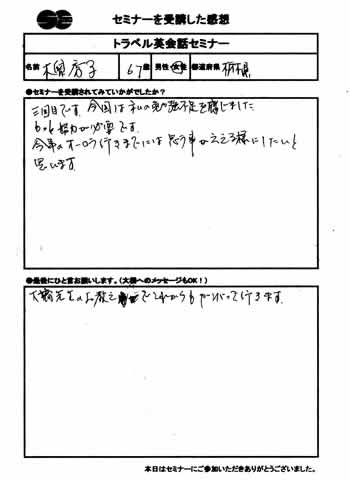 セミナーを受講した感想
トラベル英会話セミナー
名前 67歳 男性・女性 都道府県 栃木県
●セミナーを受講されてみていかがでしたか?
三回目です。今回は私の勉強不足を感じました
もっと努力が必要です。
今年のオーロラ行きまでには思う事が言える様にしたいと
思います。
●最後にひと言お願いします。(大橋へのメッセージもOK!)
大橋先生のお教えでこれからもがんばって行きます。
本日はセミナーにご参加いただきありがとうございました。